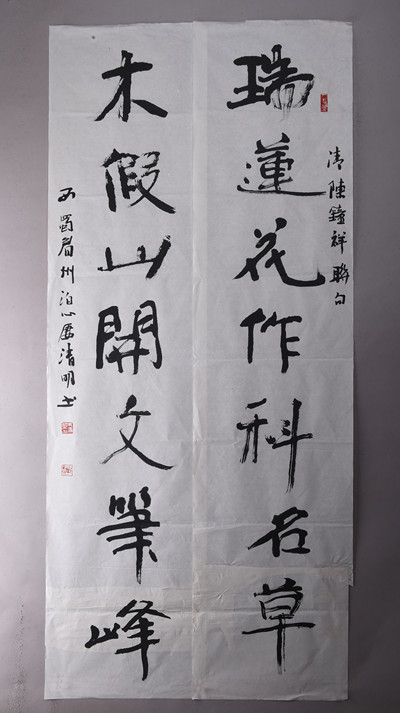 瑞蓮花作科名草
清陳鍾祥聯句
木假山開文筆峰
西蜀眉州泊心廬清明書